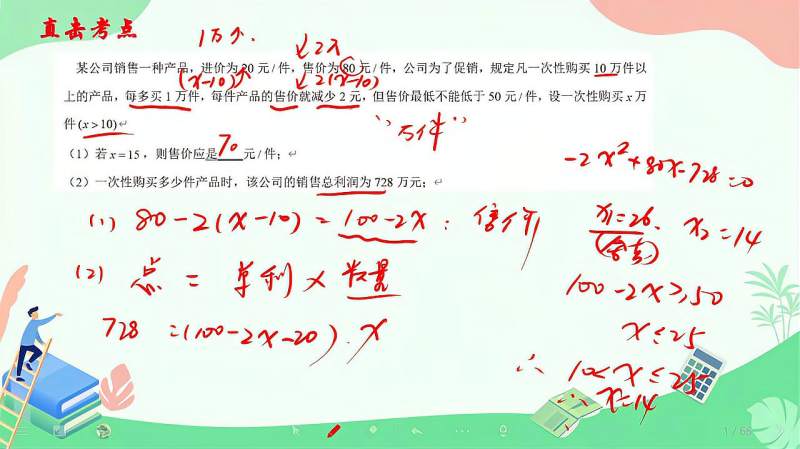 直击考点
1万个. ↙2元
某公司销售一种产品，进价为20元/件，售价为80元/件，公司为了促销，规定凡一次性购买10万件以
(x-10)个 ↓2(x-10)
上的产品，每多买1万件，每件产品的售价就减少2元，但售价最低不能低于50元/件，设一次性购买x万
件(x>10)
"万件"
（1）若x=15，则售价应是70元/件；
（2）一次性购买多少件产品时，该公司的销售总利润为728万元；
-2x²+80x-728=0
(1) 80-2(x-10)=100-2x: 售价
x₁=26. x₂=14
(舍去)
(2) 总 = 单利 × 数量
100-2x≥50
728 =(100-2x-20).x
x≤25
∴ 10<x≤25
∴ x=14
1 / 68